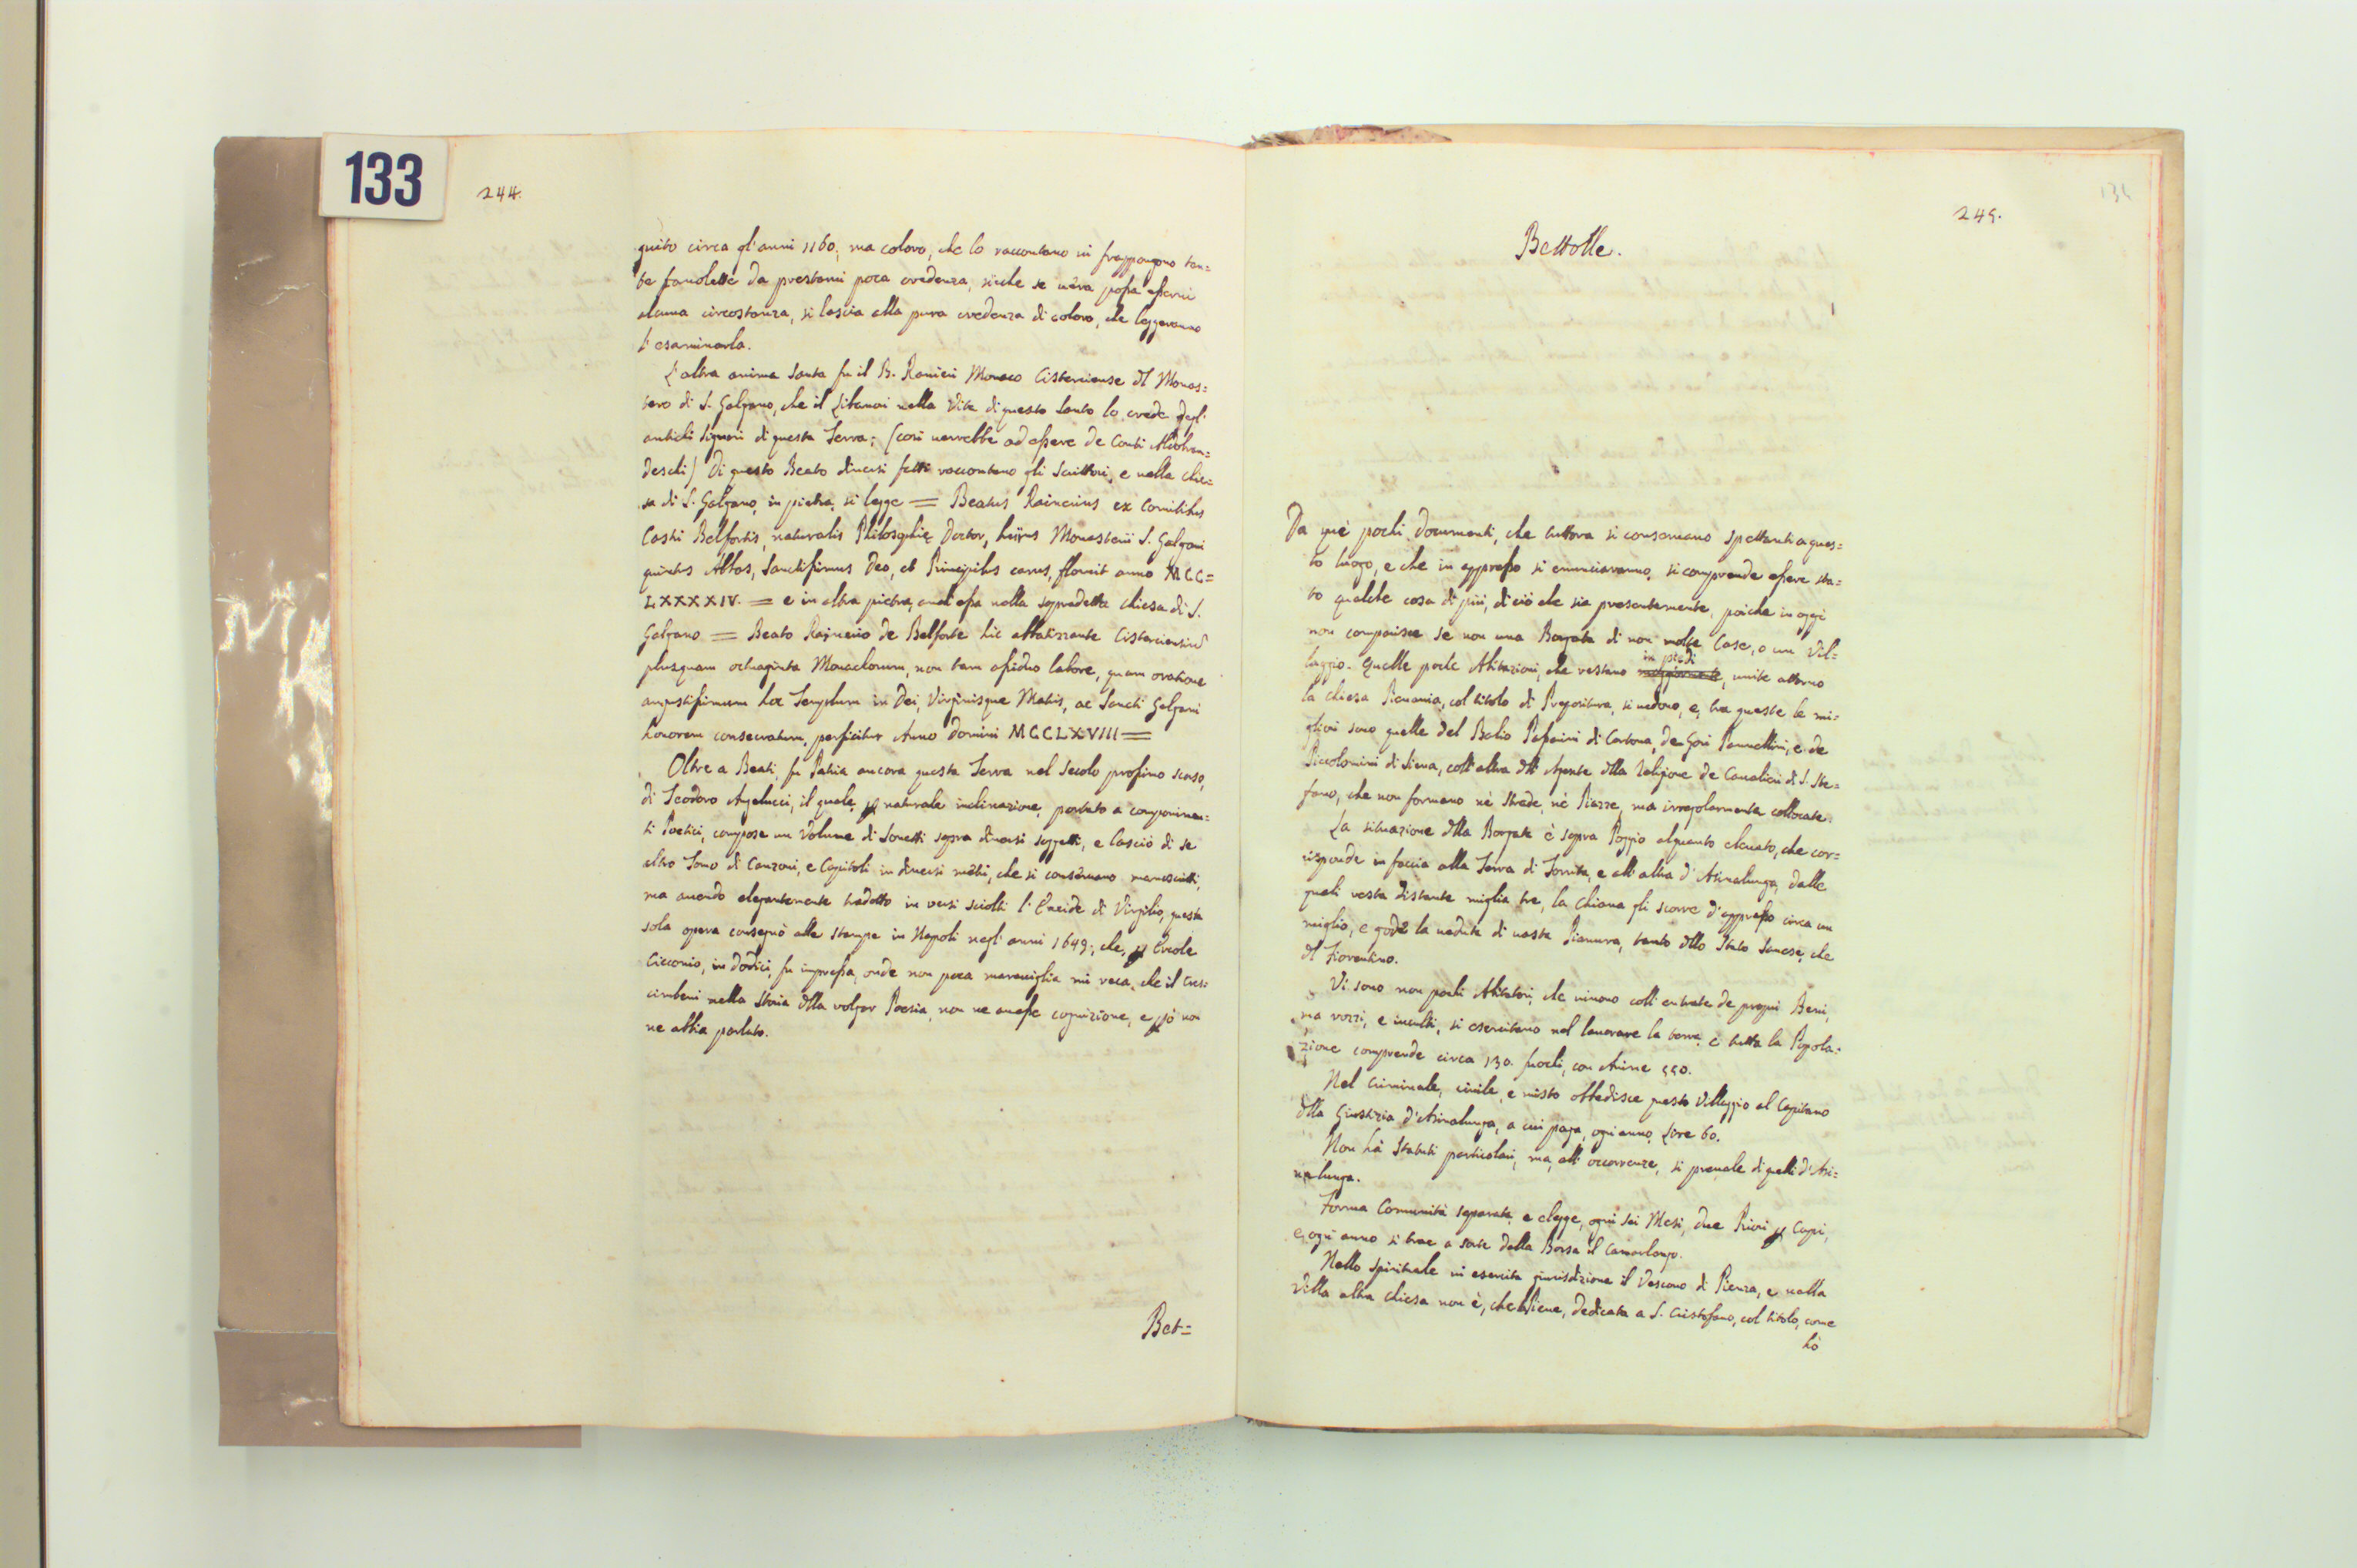 133
244.
guito circa gl'anni 1160; ma coloro, che lo raccontano vi frappongono tan=
te favolette da prestarvi poca credenza, sicche se vera possa esservi
alcuna circostanza, si lascia alla pura credenza di coloro, che leggeranno
l'esaminarla.
L'altra anima Santa fu il B. Ranieri Monaco Cisterciense dl Monas=
tero di S. Galgano, che il Libanori nella Vita di questo Santo lo crede degl'
antichi Signori di questa Terra; (così verrebbe ad essere de Conti Aldobran=
deschi) Di questo Beato diversi fatti raccontano gli Scrittori, e nella Chie=
sa di S. Galgano, in pietra, si legge = Beatus Rainerius ex Comitibus
Castri Belfortis, naturalis Philosophię Doctor, huius Monasterii S. Galgani
quintus Abbas, Sanctissimus Deo, et Principibus carus, floruit anno MCC=
LXXXXIV. = e in altra pietra, anch'essa nella sopradetta Chiesa di S.
Galgano = Beato Rainerio de Belforte hic abbatizzante Cisterciensium
plusquam octuaginta Monachorum, non tam assiduo labore, quam oratione
angustissimum hoc Templum in Dei, Virginisque Matris, ac Sancti Galgani
honorem consecratum, perficitur Anno Domini MCCLXVIII =
Oltre a Beati, fu Patria ancora questa Terra nel Secolo prossimo scorso,
di Teodoro Angelucci, il quale, p naturale inclinazione, portato a componimen=
ti Poetici, compose un Volume di Sonetti sopra diversi soggetti, e lasciò di se
altro Tomo di Canzoni, e Capitoli in diversi metri, che si conservano manoscritti;
ma avendo elegantemente tradotto in versi sciolti l'Eneide di Virgilio, questa
sola opera consegnò alle stampe in Napoli negl'anni 1649; che, p Ercole
Cicconio, in dodici, fu impressa, onde non poca maraviglia mi reca, che il Cres=
cimbeni nella Storia dlla volgar Poesia, non ne avesse cognizione, e pò non
ne abbia parlato.
Bet=
245.
134
Bettolle.
Da quei pochi Documenti, che tuttora si conservano spettanti a ques=
to luogo, e che in appresso si enunciaranno, si comprende essere sta=
to qualche cosa di più, di ciò che sia presentemente, poiche in oggi
non comparisce se non una Borgata di non molte Case, o un Vil=
laggio. Quelle poche Abitazioni, che restano in piedi, unite attorno
la Chiesa Plevania, col titolo di Prepositura, si vedono, e, tra queste le mi=
gliori sono quelle del Balio Passerini di Cortona, de Gori Pannellini, e de
Piccolomini di Siena, coll'altra dll'Agente dlla Religione de Cavalieri di S. Ste=
fano, che non formano nè Strade, nè Piazze, ma irregolarmente collocate.
La situazione dlla Borgata è sopra Poggio alquanto elevato, che cor=
risponde in faccia alla Terra di Torrita, e all'altra d'Asinalunga, dalle
quali resta distante miglia tre, la Chiana gli scorre d'appresso circa un
miglio, e gode la veduta di vasta Pianura, tanto dllo Stato Sanese, che
dl Fiorentino.
Vi sono non pochi Abitatori, che vivono coll'entrate de proprj Beni,
ma rozzi, e inculti, si esercitano nel lavorare la terra, e tutta la Popola=
zione comprende circa 130. fuochi, con Anime 550.
Nel Criminale, civile, e misto obbedisce questo Villaggio al Capitano
dlla Giustizia d'Asinalunga, a cui paga, ogni anno, Lire 60.
Non hà Statuti particolari, ma, all'occorrenze, si prevale di quelli d'Asi=
nalunga.
Forma Comunità separata, e elegge, ogni sei Mesi, due Priori p Capi,
e, ogni anno si trae a sorte dalla Borsa il Camarlengo.
Nello Spirituale vi esercita giurisdizione il Vescovo di Pienza, e nella
Villa altra Chiesa non è, che la Pieve, dedicata a S. Cristofano, col titolo, come
hò